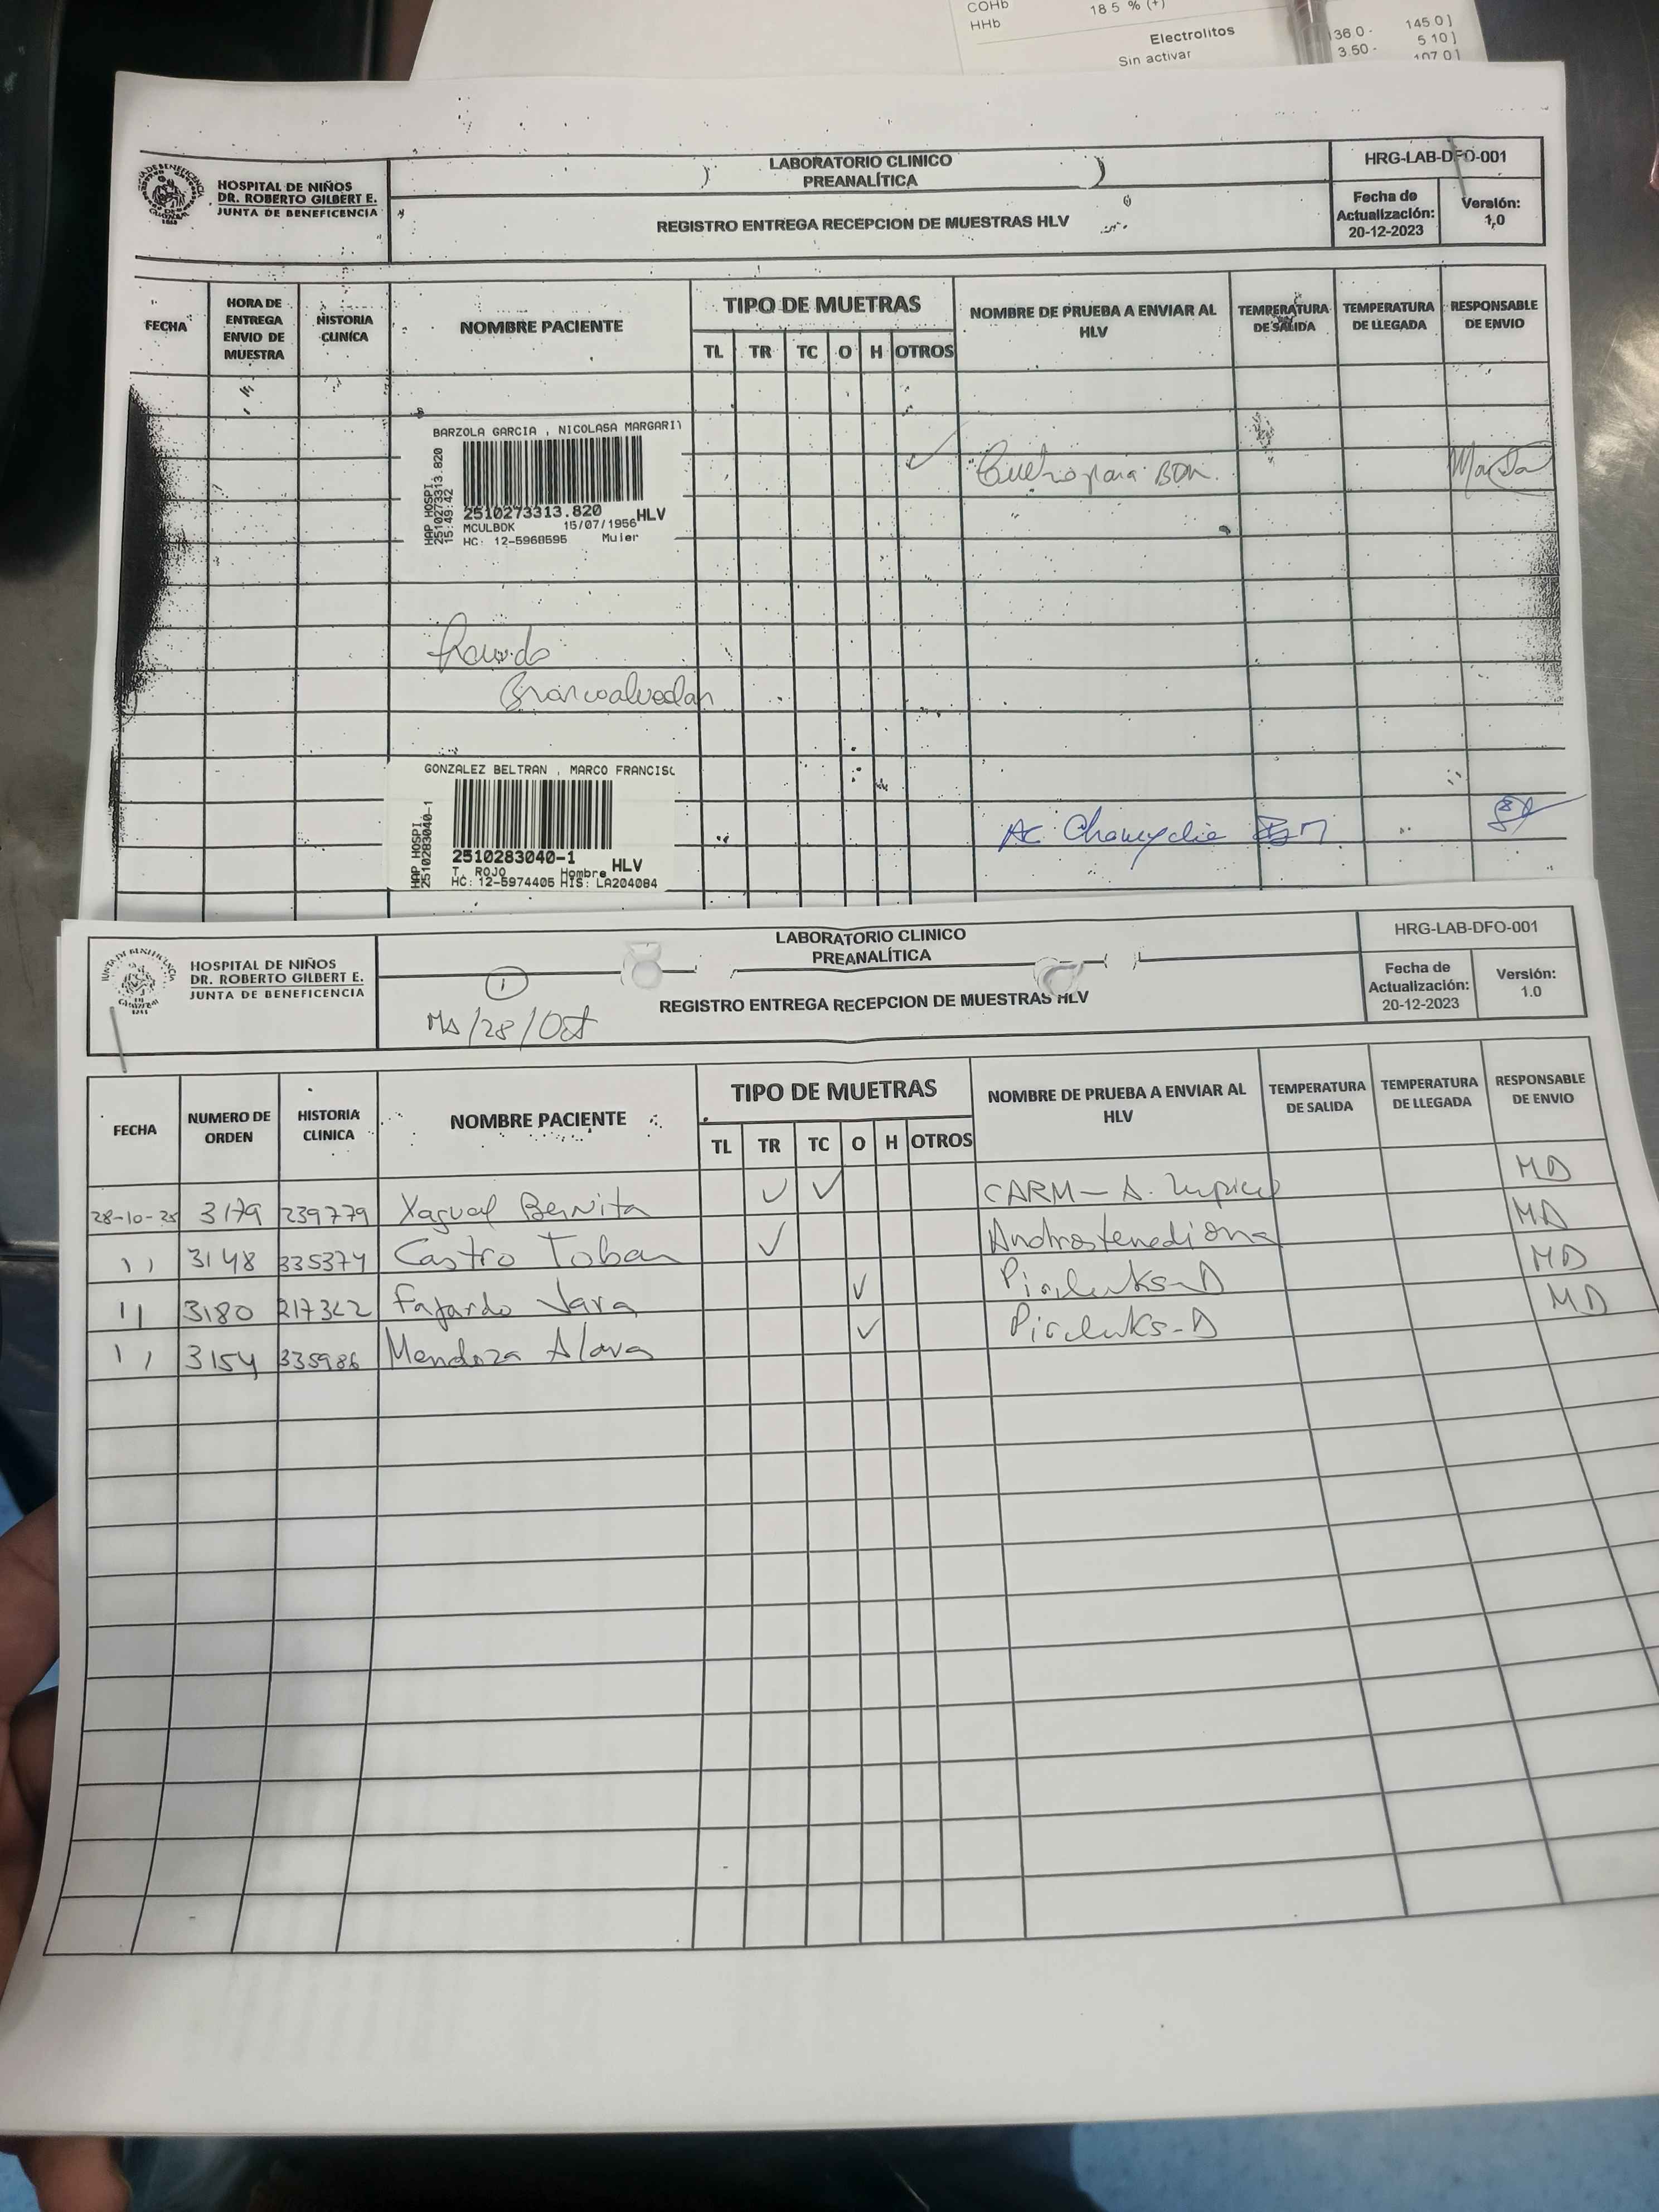 COHb 18.5 % (+)
HHb
Electrolitos
Sin activar
136.0 - 145.0]
3.50 - 5.10]
107.0]
HOSPITAL DE NIÑOS
DR. ROBERTO GILBERT E.
JUNTA DE BENEFICENCIA
LABORATORIO CLINICO
PREANALÍTICA
REGISTRO ENTREGA RECEPCION DE MUESTRAS HLV
HRG-LAB-DFO-001
Fecha de Actualización: 20-12-2023
Versión: 1,0
FECHA
HORA DE ENTREGA ENVIO DE MUESTRA
HISTORIA CLINÍCA
NOMBRE PACIENTE
TIPO DE MUETRAS
TL TR TC O H OTROS
NOMBRE DE PRUEBA A ENVIAR AL HLV
TEMPERATURA DE SALIDA
TEMPERATURA DE LLEGADA
RESPONSABLE DE ENVIO
BARZOLA GARCIA , NICOLASA MARGARI
HAP HOSPI
2510273313.820
15:49:42
2510273313.820 HLV
MCULBDK 15/07/1956
HC: 12-5960595 Mujer
✓ para BDK.
GONZALEZ BELTRAN , MARCO FRANCISC
HAP HOSPI
2510283040-1
2510283040-1 HLV
T. ROJO Hombre
HC: 12-5974405 HIS: LA204084
HOSPITAL DE NIÑOS
DR. ROBERTO GILBERT E.
JUNTA DE BENEFICENCIA
LABORATORIO CLINICO
PREANALÍTICA
REGISTRO ENTREGA RECEPCION DE MUESTRAS HLV
1
Ms/28/Oct
HRG-LAB-DFO-001
Fecha de Actualización: 20-12-2023
Versión: 1.0
FECHA
NUMERO DE ORDEN
HISTORIA CLINICA
NOMBRE PACIENTE
TIPO DE MUETRAS
TL TR TC O H OTROS
NOMBRE DE PRUEBA A ENVIAR AL HLV
TEMPERATURA DE SALIDA
TEMPERATURA DE LLEGADA
RESPONSABLE DE ENVIO
28-10-25 3179 239779 Xagual Benita ✓ ✓ CARM - A. MD
11 3148 335374 Castro Toban ✓ Androstenediona MD
11 3180 217322 Fajardo Jara ✓ MD
11 3154 335986 Mendoza Alava ✓ MD